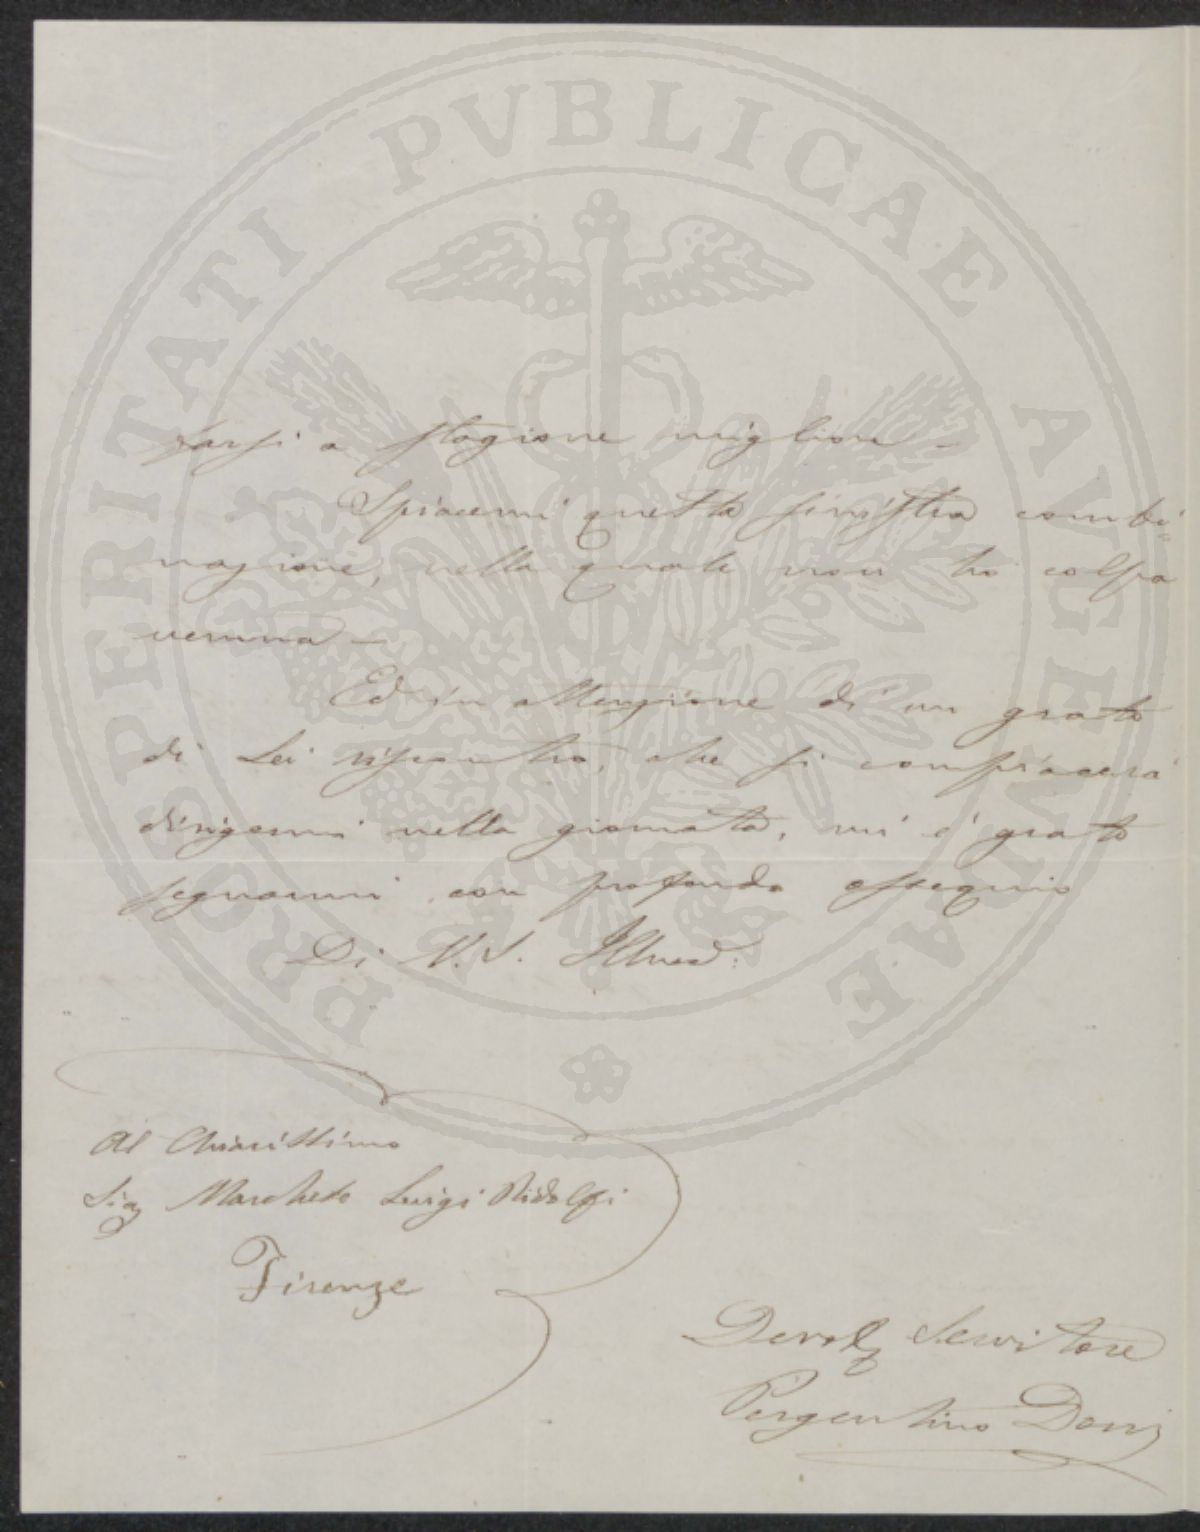 PROSPERITATI PVBLICAE AVGENDAE
farsi a stagione migliore —
Spiacemi questa sinistra combi=
nazione, nella quale non ho colpa
veruna —
Ed in attenzione di un grato
di Lei riscontro, che si compiacerà
dirigermi nella giornata, mi è grato
segnarmi con profondo ossequio
Di V. S. Illma:
Al Chiarissimo
Sig Marchese Luigi Ridolfi
Firenze
Devo Servitore
Pergentino Doni